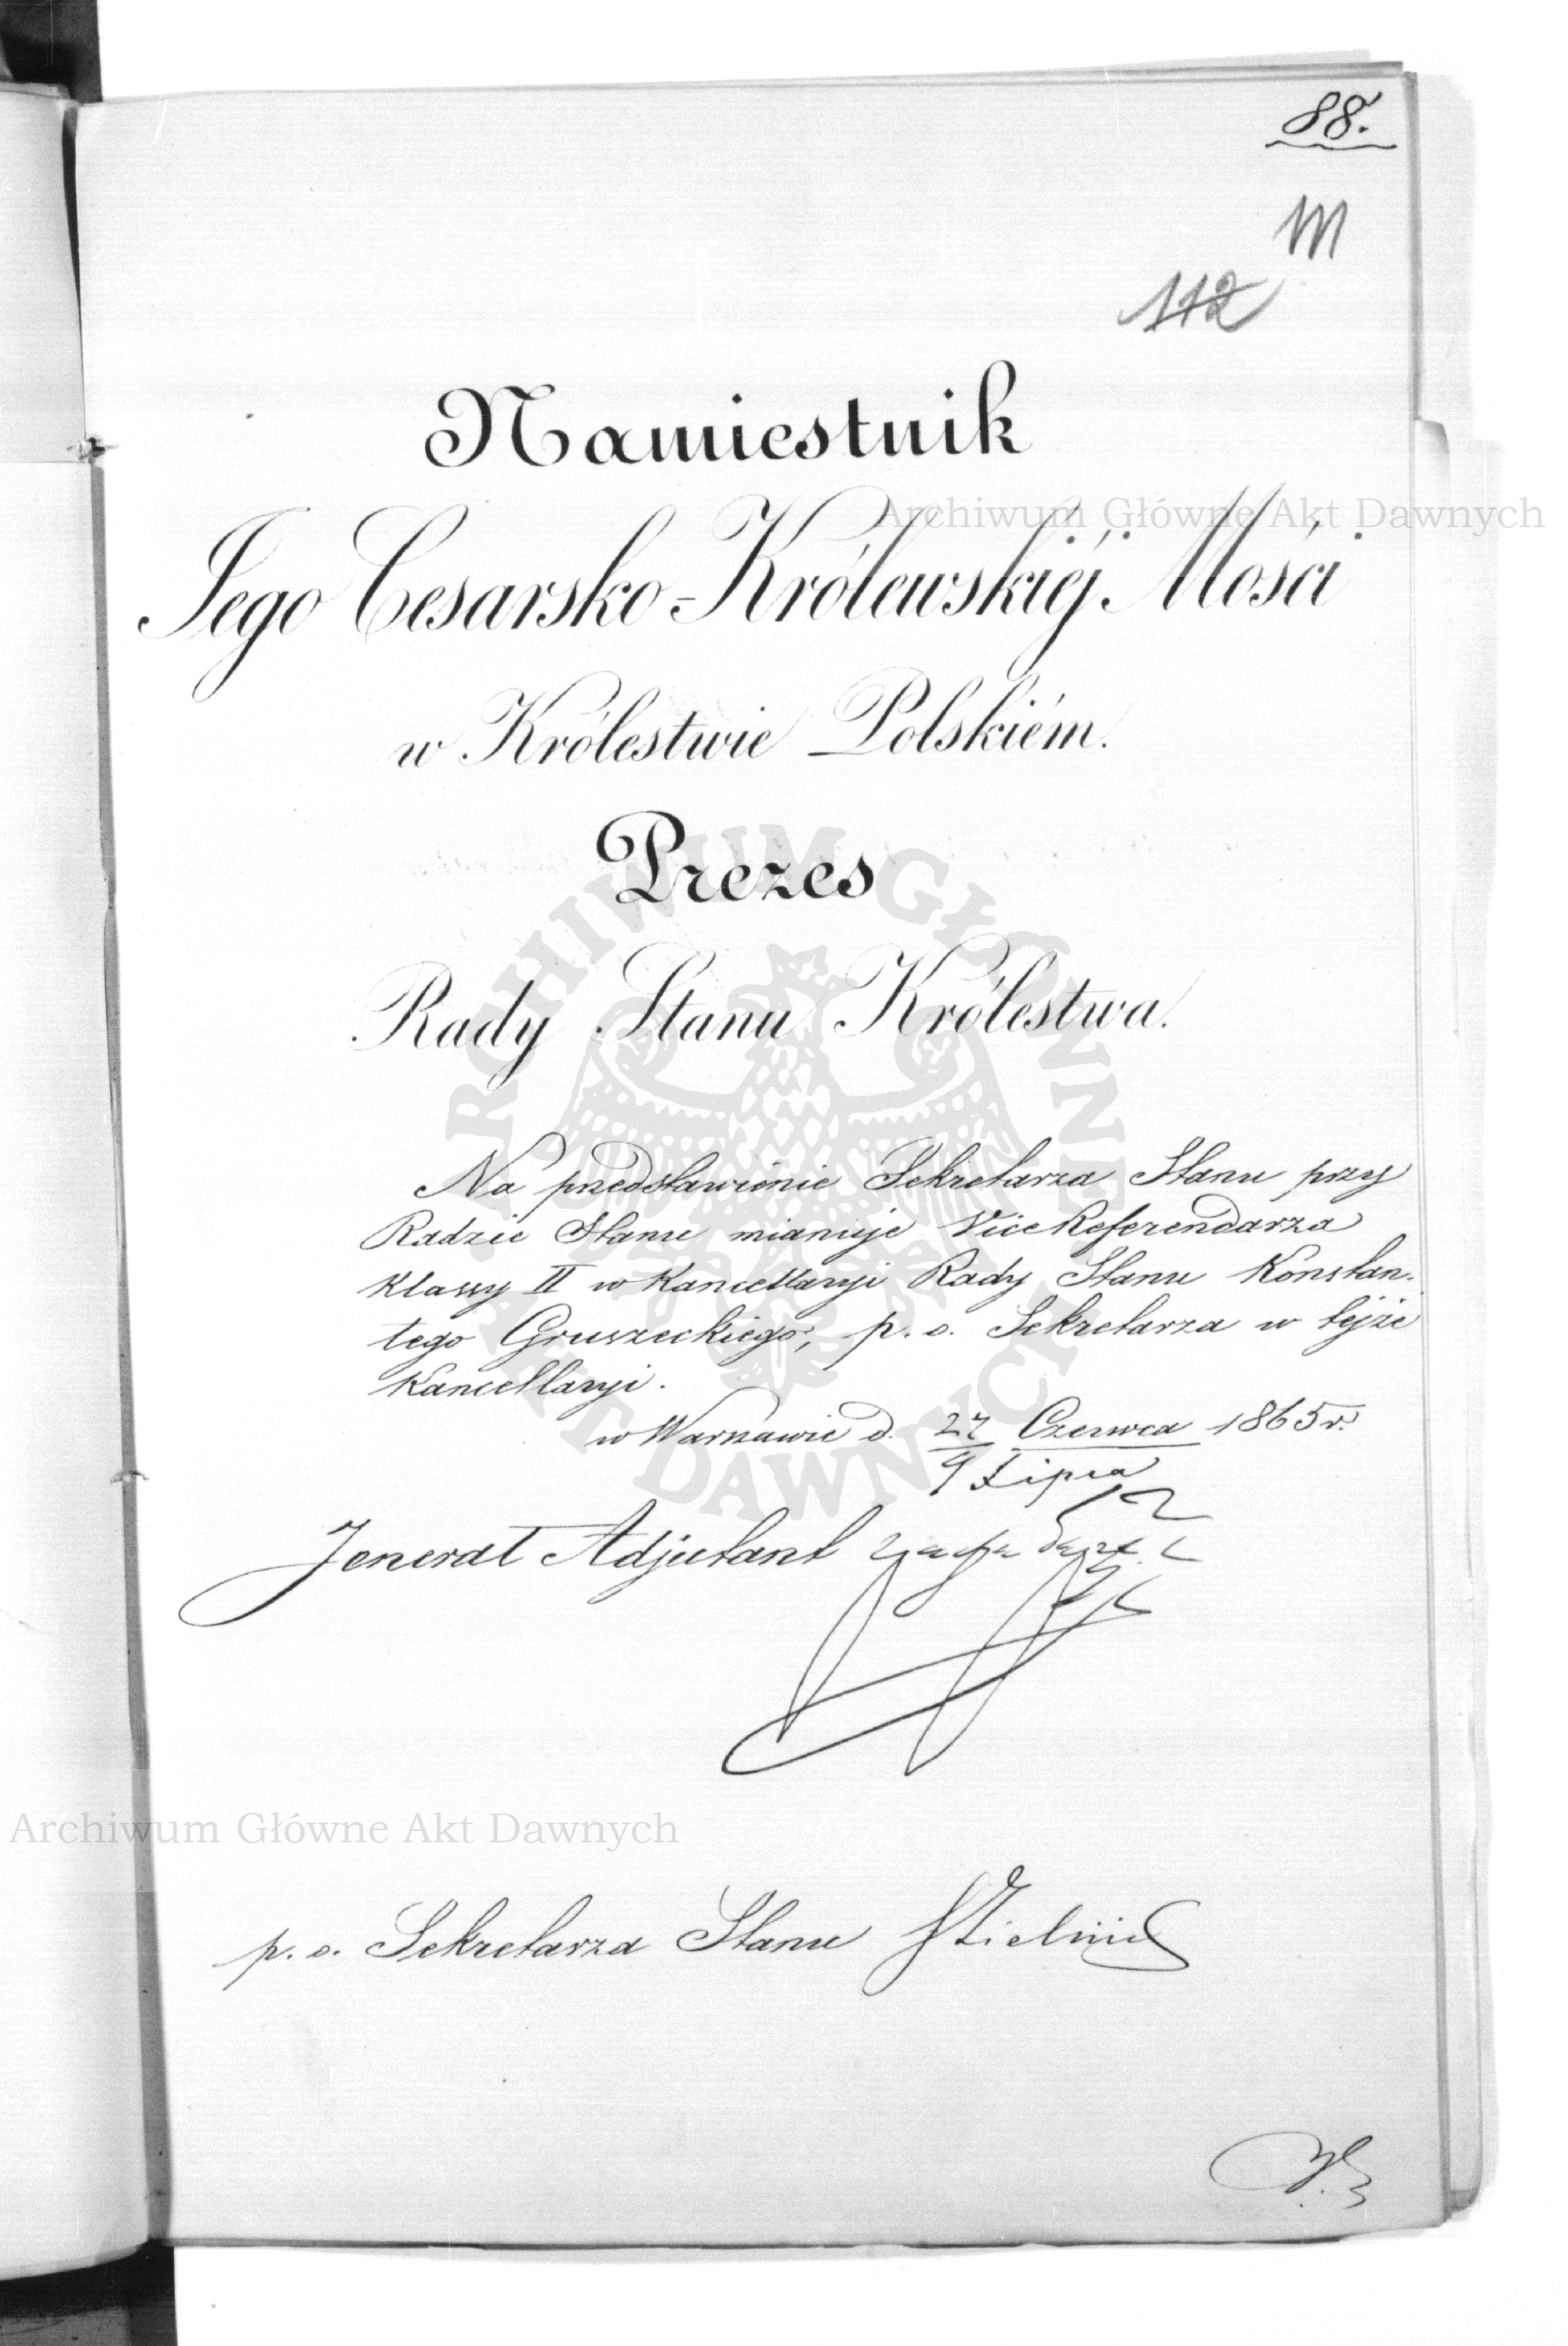 88.
111
112
Namiestnik
Jego Cesarsko-Królewskiéj Mości
w Królestwie Polskiém.
Prezes
Rady Stanu Królestwa.
Na przedstawienie Sekretarza Stanu przy
Radzie Stanu mianuje ViceReferendarza
Klassy II w Kancellaryi Rady Stanu Konstan-
tego Gruszeckiego, p. o. Sekretarza w tejże
Kancellaryi.
w Warszawie d. 27 Czerwca 1865 r.
9 Lipca
Jenerał Adjutant
p. o. Sekretarza Stanu
Archiwum Główne Akt Dawnych
Archiwum Główne Akt Dawnych
ARCHIWUM GŁÓWNE AKT DAWNYCH